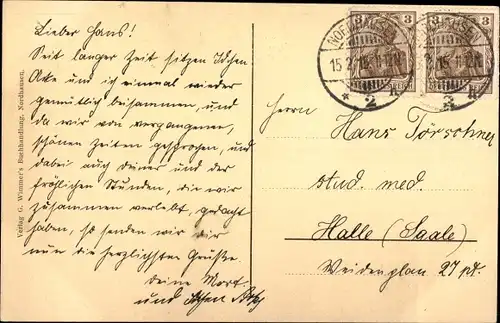 Lieber Hans!
Seit langer Zeit sitzen
Otto und ich einmal wieder
gemütlich beisammen, und
da wir von vergangenen,
schönen Zeiten gesprochen, und
dabei auch Deiner und der
fröhlichen Stunden, die wir
zusammen verlebt, gedacht
haben, so senden wir Dir
nun die herzlichsten Grüße.
Deine
und
Verlag G. Wimmer's Buchhandlung, Nordhausen.
3 3
NORDHAUSEN
15.2.
Herrn Hans Törschner
stud. med.
Halle (Saale)
Weidenplan 27 pt.